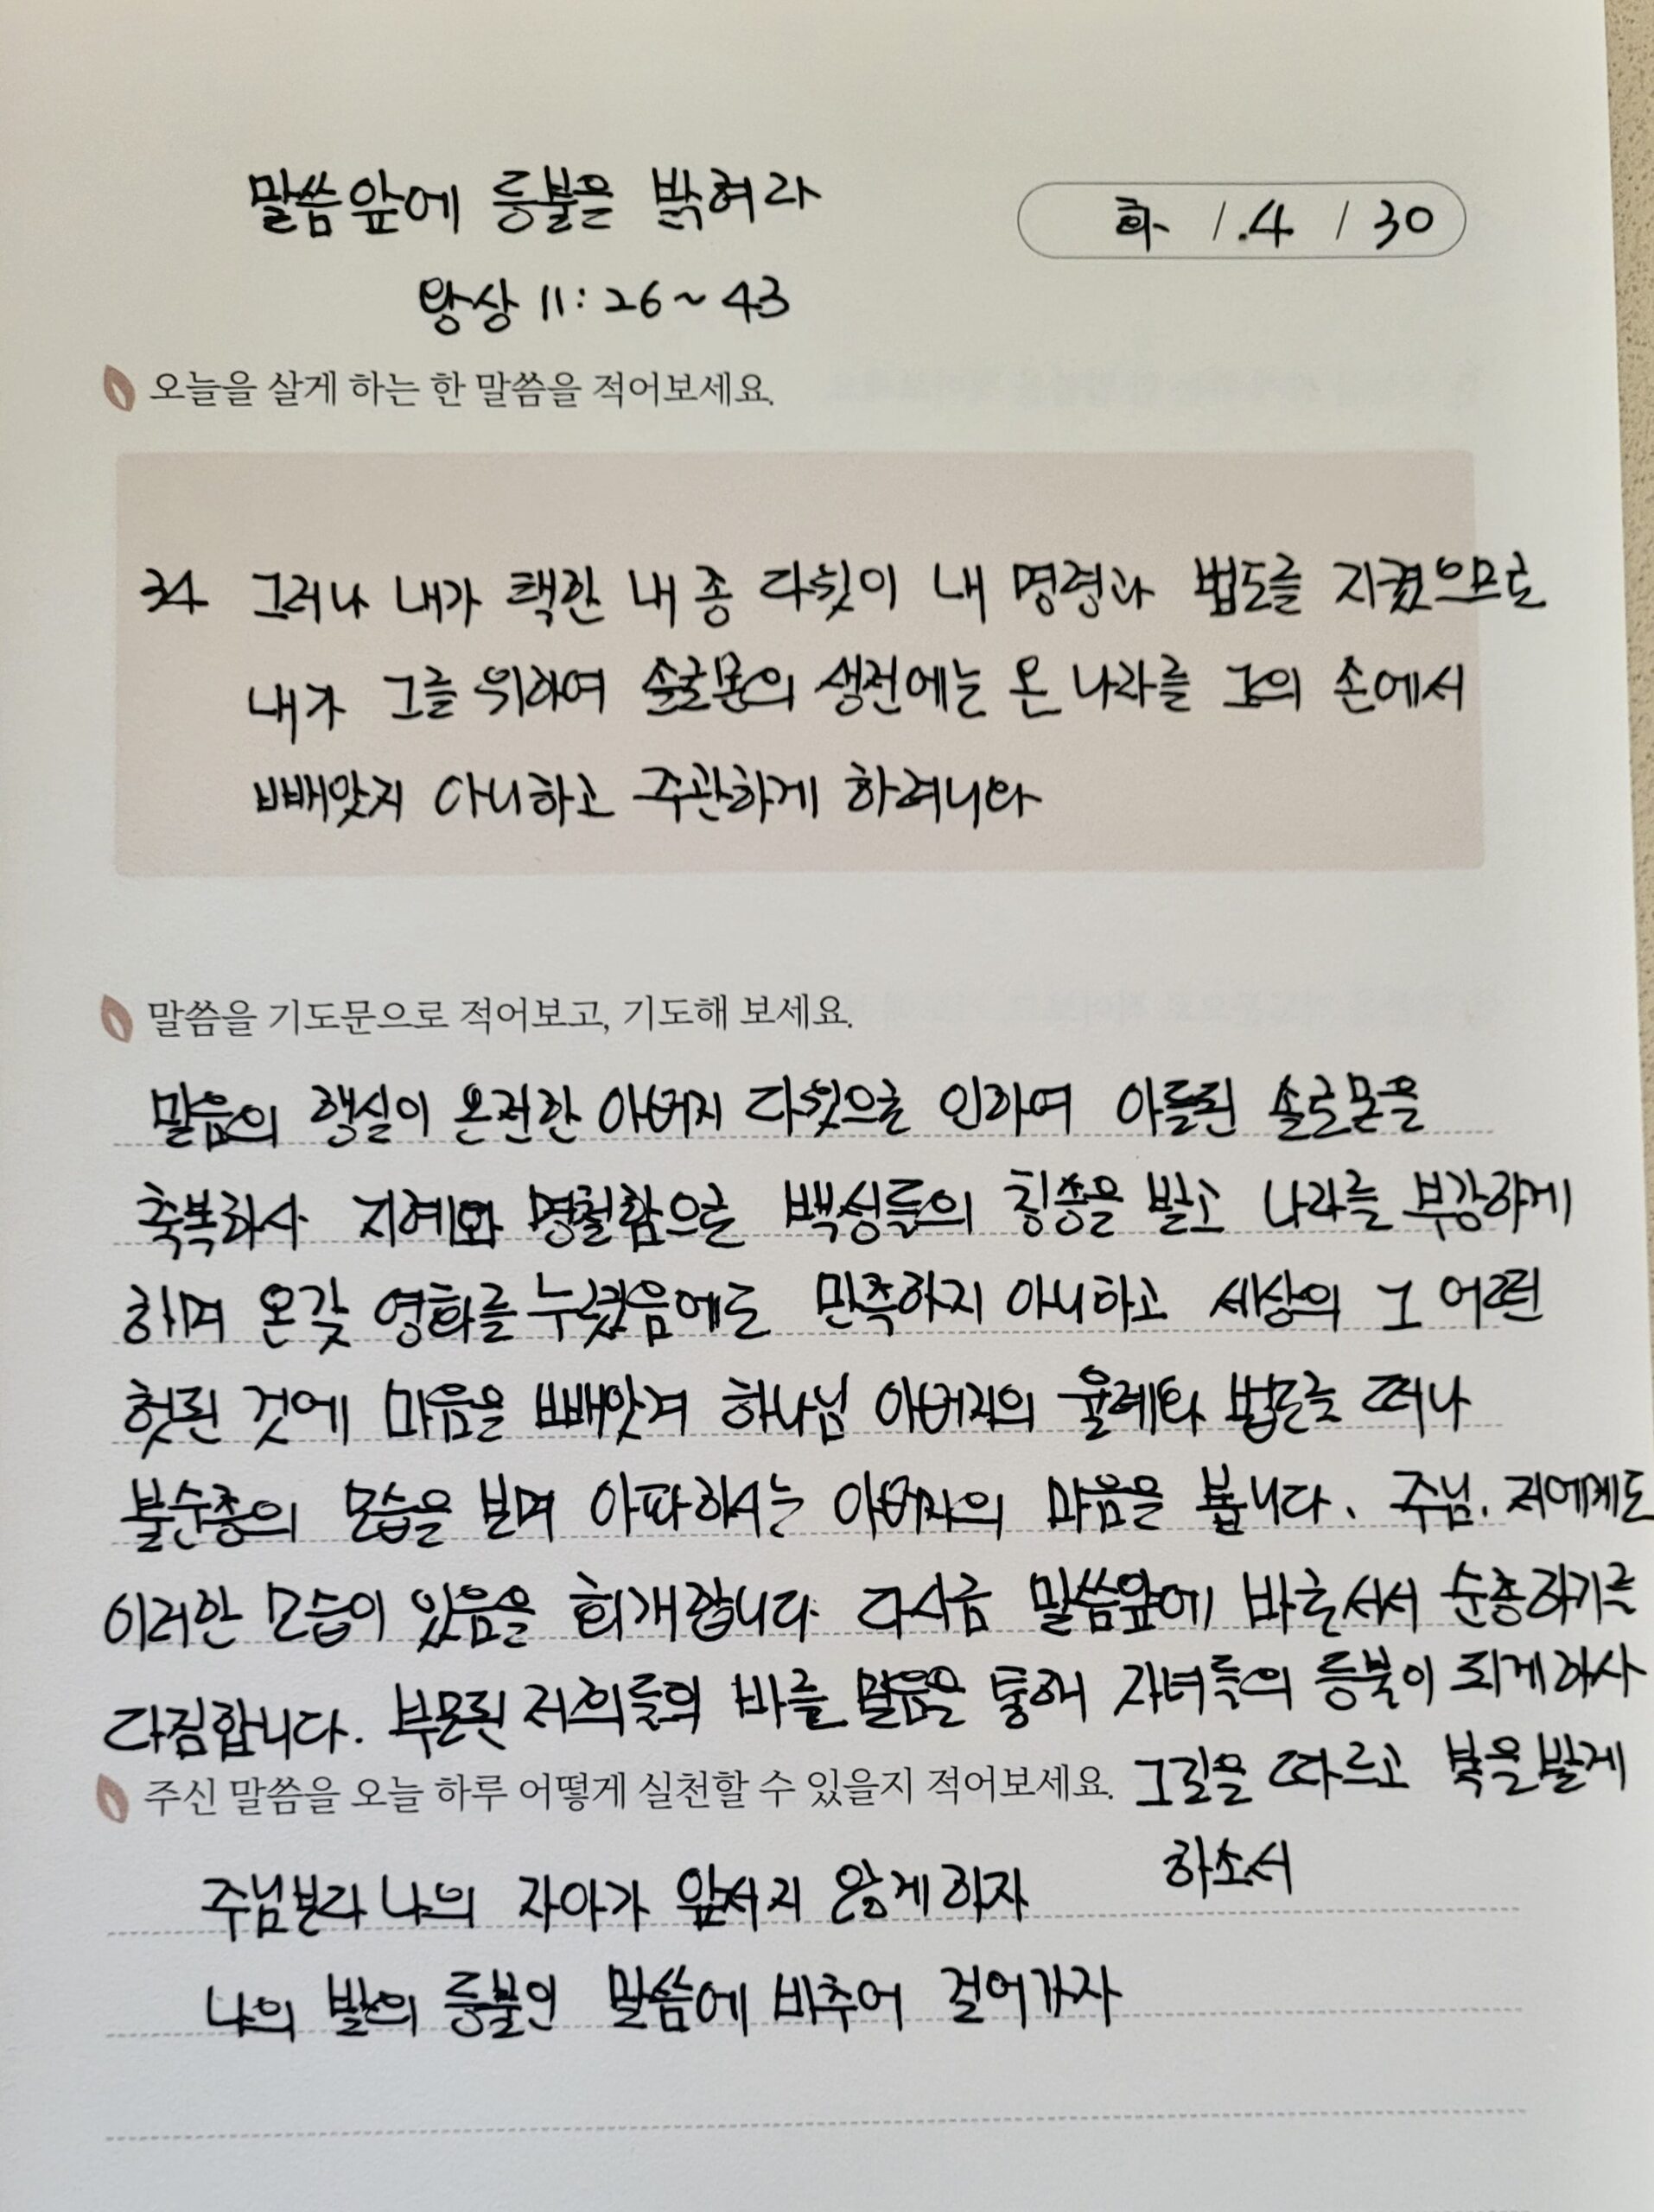 말씀앞에 등불을 밝혀라
화 / .4 / 30
왕상 11 : 26 ~ 43
오늘을 살게 하는 한 말씀을 적어보세요.
34 그러나 내가 택한 내 종 다윗이 내 명령과 법도를 지켰으므로
내가 그를 위하여 솔로몬의 생전에는 온 나라를 그의 손에서
빼앗지 아니하고 주관하게 하려니와
말씀을 기도문으로 적어보고, 기도해 보세요.
믿음의 행실이 온전한 아버지 다윗으로 인하여 아들된 솔로몬을
축복하사 지혜와 명철함으로 백성들의 칭송을 받고 나라를 부강하게
하며 온갖 영화를 누렸음에도 만족하지 아니하고 세상의 그 어떤
헛된 것에 마음을 빼앗겨 하나님 아버지의 율례와 법도를 떠나
불순종의 모습을 보며 아파하시는 아버지의 마음을 봅니다. 주님. 저에게도
이러한 모습이 있음을 회개합니다. 다시금 말씀앞에 바로서서 순종하기를
다짐합니다. 부모된 저희들의 바를 믿음을 통해 자녀들의 등불이 되게하사
그길을 따르고 복을받게
하소서
주신 말씀을 오늘 하루 어떻게 실천할 수 있을지 적어보세요.
주님보다 나의 자아가 앞서지 않게하자
나의 발의 등불인 말씀에 비추어 걸어가자